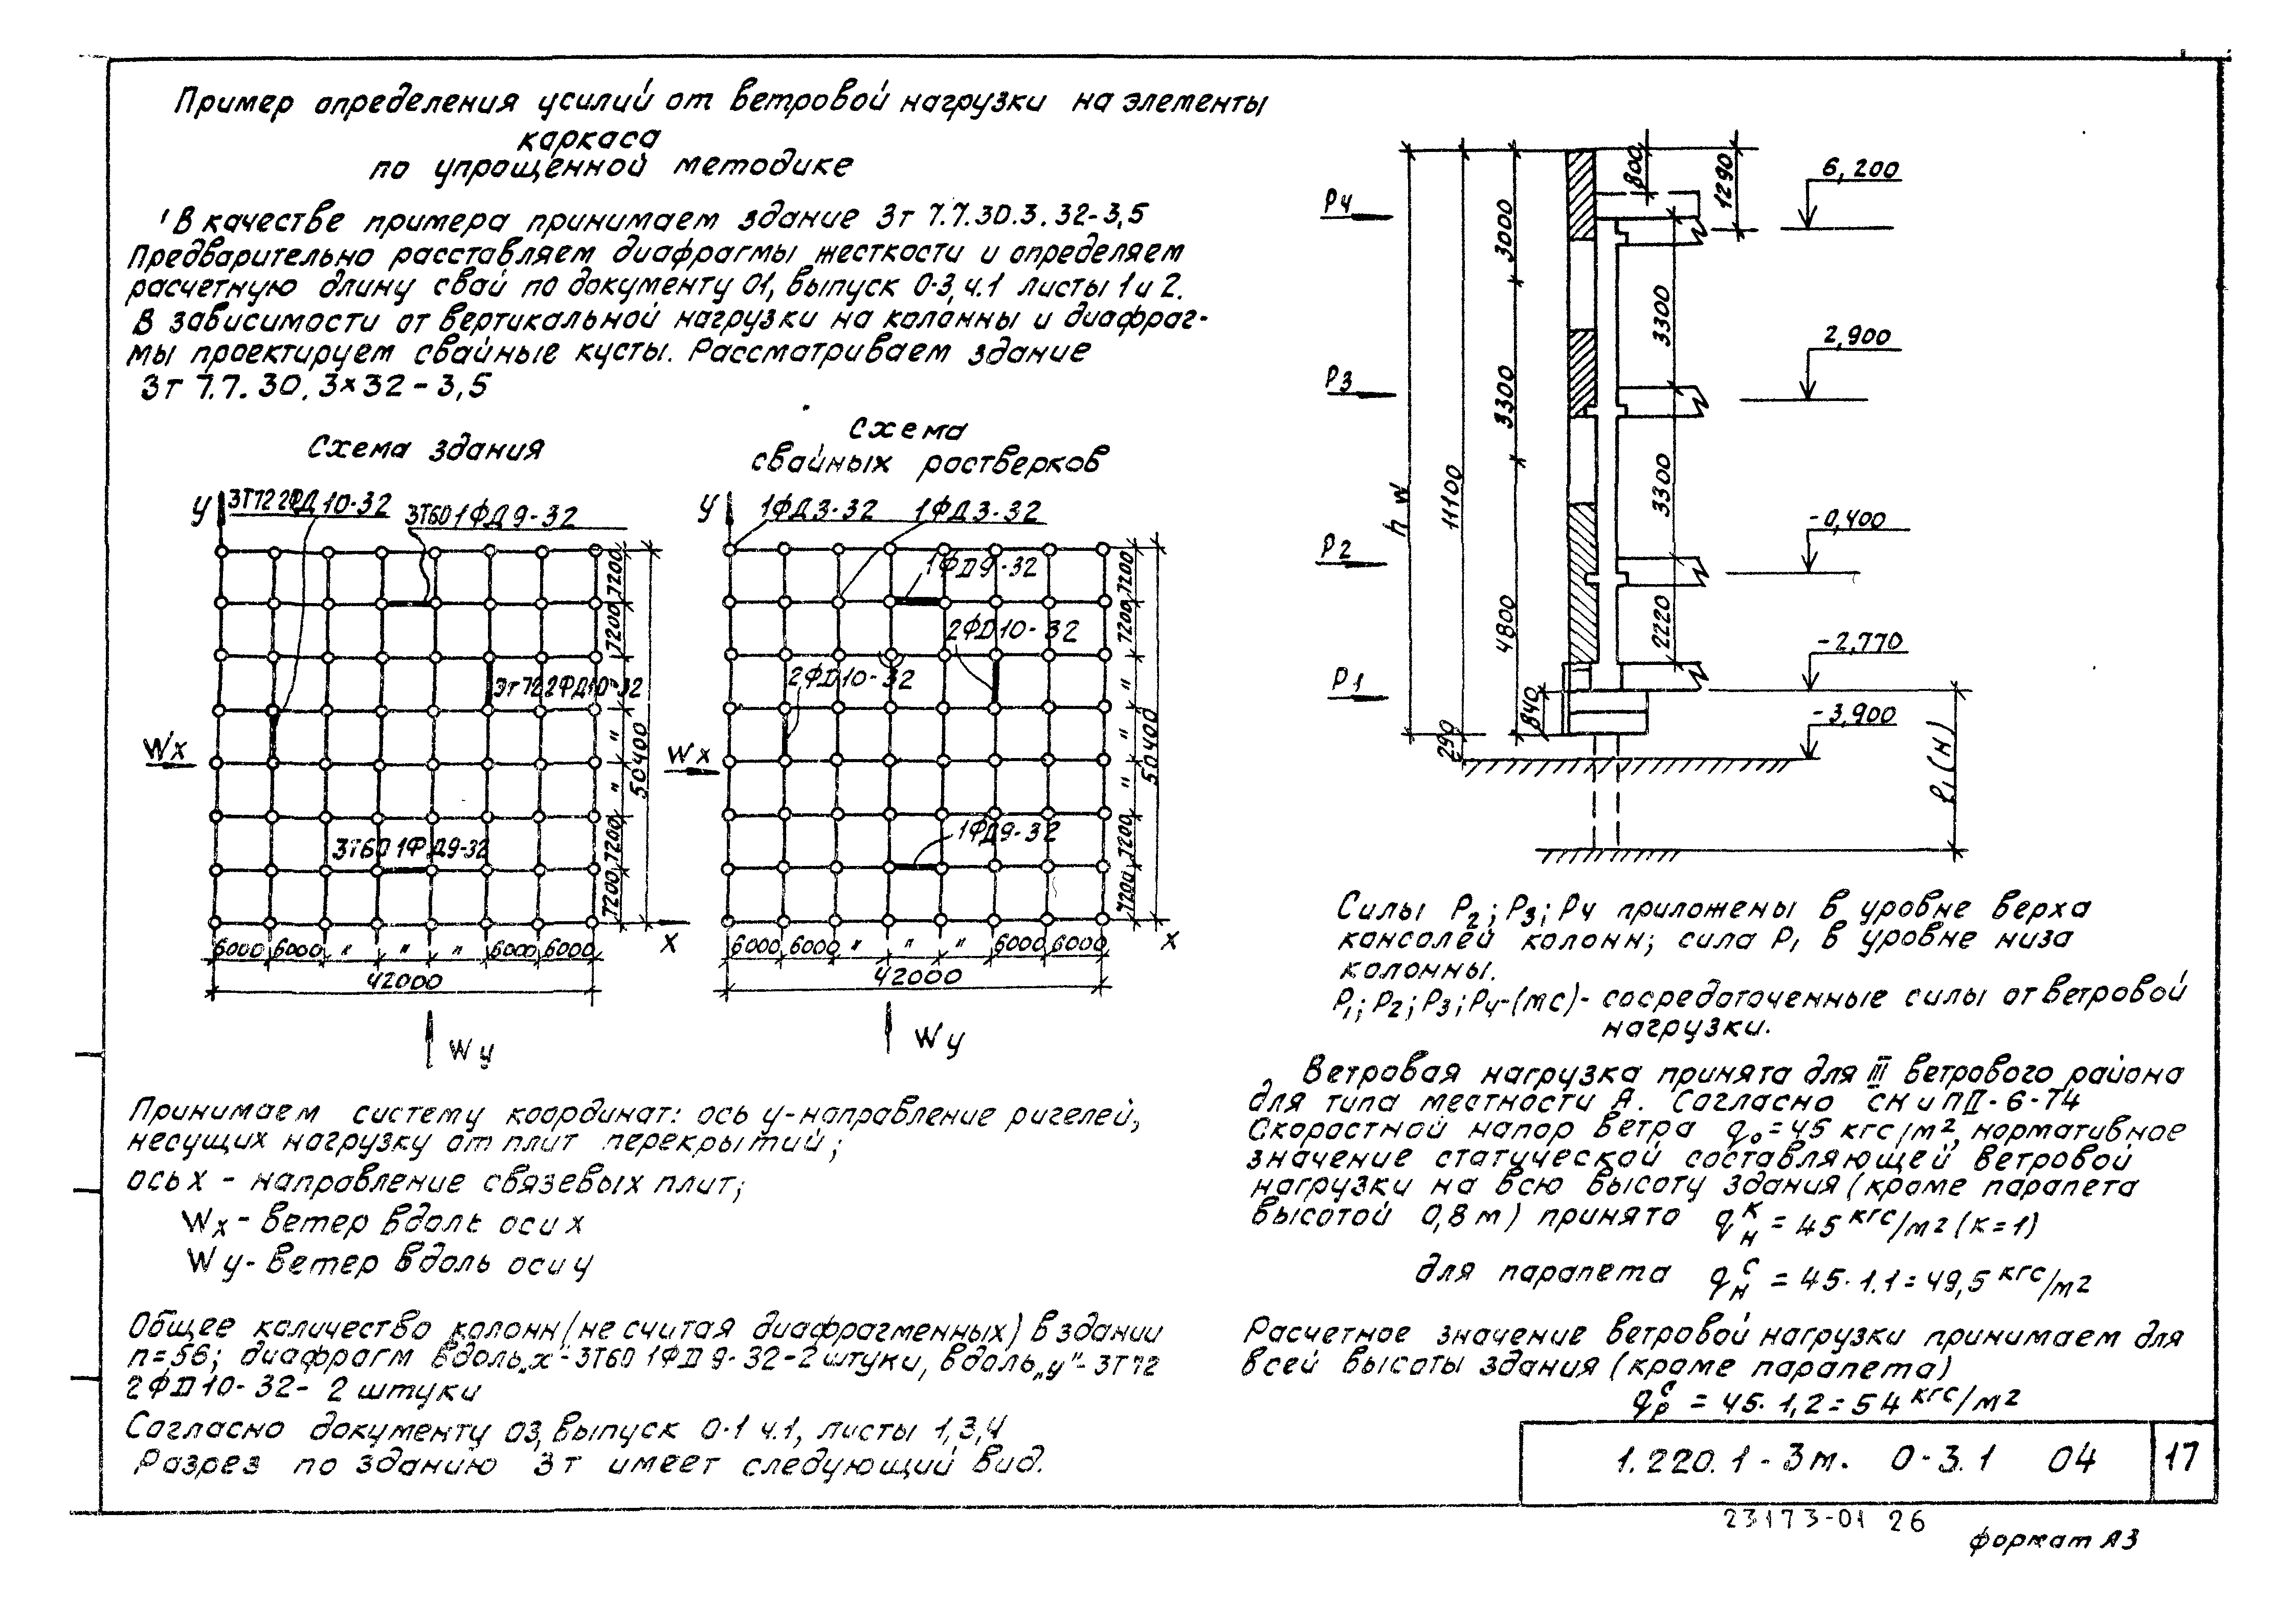 Пример определения усилий от ветровой нагрузки на элементы
каркаса
по упрощенной методике
В качестве примера принимаем здание 3т 7.7.30.3.32-3,5
Предварительно расставляем диафрагмы жесткости и определяем
расчетную длину свай по документу 01, выпуск 0-3, ч.1 листы 1 и 2.
В зависимости от вертикальной нагрузки на колонны и диафраг-
мы проектируем свайные кусты. Рассматриваем здание
3т 7.7.30.3×32-3,5
Схема здания
y
3Т72 2ФД10-32
3Т60 1ФД9-32
3т72 2ФД10-32
3Т60 1ФД9-32
Wx
7200
7200
"
"
7200
7200
50400
6000 6000 " " " 6000 6000
x
42000
Wy
Схема
свайных ростверков
y
1ФД3-32
1ФД3-32
1ФД9-32
2ФД10-32
2ФД10-32
1ФД9-32
Wx
7200
7200
"
"
"
7200
7200
50400
6000 6000 " " " 6000 6000
x
42000
Wy
Принимаем систему координат: ось y-направление ригелей,
несущих нагрузку от плит перекрытий;
ось x - направление связевых плит;
Wx - ветер вдоль оси x
Wy - ветер вдоль оси y
Общее количество колонн (не считая диафрагменных) в здании
n=56; диафрагм вдоль „x"-3Т60 1ФД9-32-2 штуки, вдоль „y"-3Т72
2ФД10-32- 2 штуки
Согласно документу 03, выпуск 0-1 ч.1, листы 1,3,4
Разрез по зданию 3т имеет следующий вид.
P4
P3
P2
P1
hw
11100
290
3000
3300
4800
840
800
1290
3300
3300
2220
6,200
2,900
-0,400
-2,770
-3,900
ℓ₁(н)
Силы P₂; P₃; P4 приложены в уровне верха
консолей колонн; сила P₁ в уровне низа
колонны.
P₁; P₂; P₃; P4-(тс)- сосредоточенные силы от ветровой
нагрузки.
Ветровая нагрузка принята для III ветрового района
для типа местности А. Согласно СНиП II-6-74
Скоростной напор ветра q₀=45 кгс/м², нормативное
значение статической составляющей ветровой
нагрузки на всю высоту здания (кроме парапета
высотой 0,8 м) принято qнᴷ = 45 кгс/м² (к=1)
для парапета qнᶜ = 45·1.1 = 49,5 кгс/м²
Расчетное значение ветровой нагрузки принимаем для
всей высоты здания (кроме парапета)
qрᶜ = 45·1,2 = 54 кгс/м²
1.220.1-3м. 0-3.1 04
17
23173-01 26
формат А3